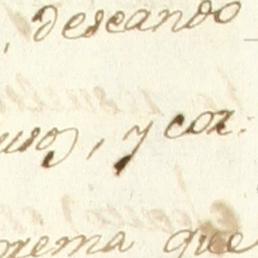 , deseando
uros, y cor.
rema que